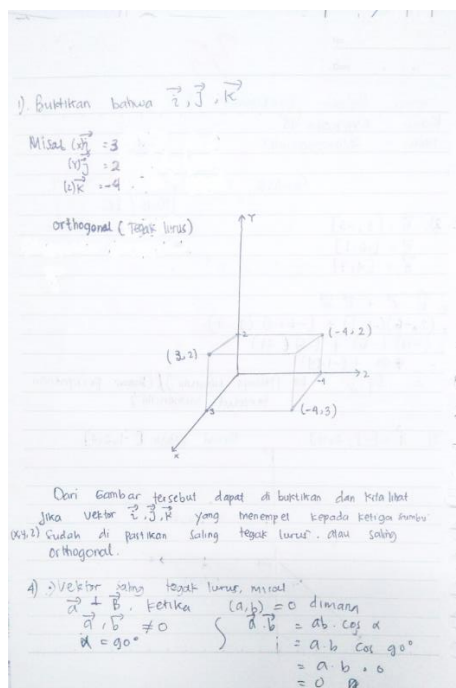 1). Buktikan bahwa i, j, k
Misal (x)i = 3
(y)j = 2
(z)k = -4
orthogonal (Tegak lurus)
Y
2
(-4,2)
(3,2)
-4
Z
3
(-4,3)
X
Dari Gambar tersebut dapat di buktikan dan kita lihat
Jika vektor i, j, k yang menempel kepada ketiga sumbu
(x,y,z) sudah di pastikan saling tegak lurus. atau saling
orthogonal.
4) •) Vektor saling tegak lurus, misal
a ⊥ b, ketika (a,b) = 0 dimana
a, b ≠ 0 a . b = ab cos α
α = 90° = a.b cos 90°
= a.b . 0
= 0